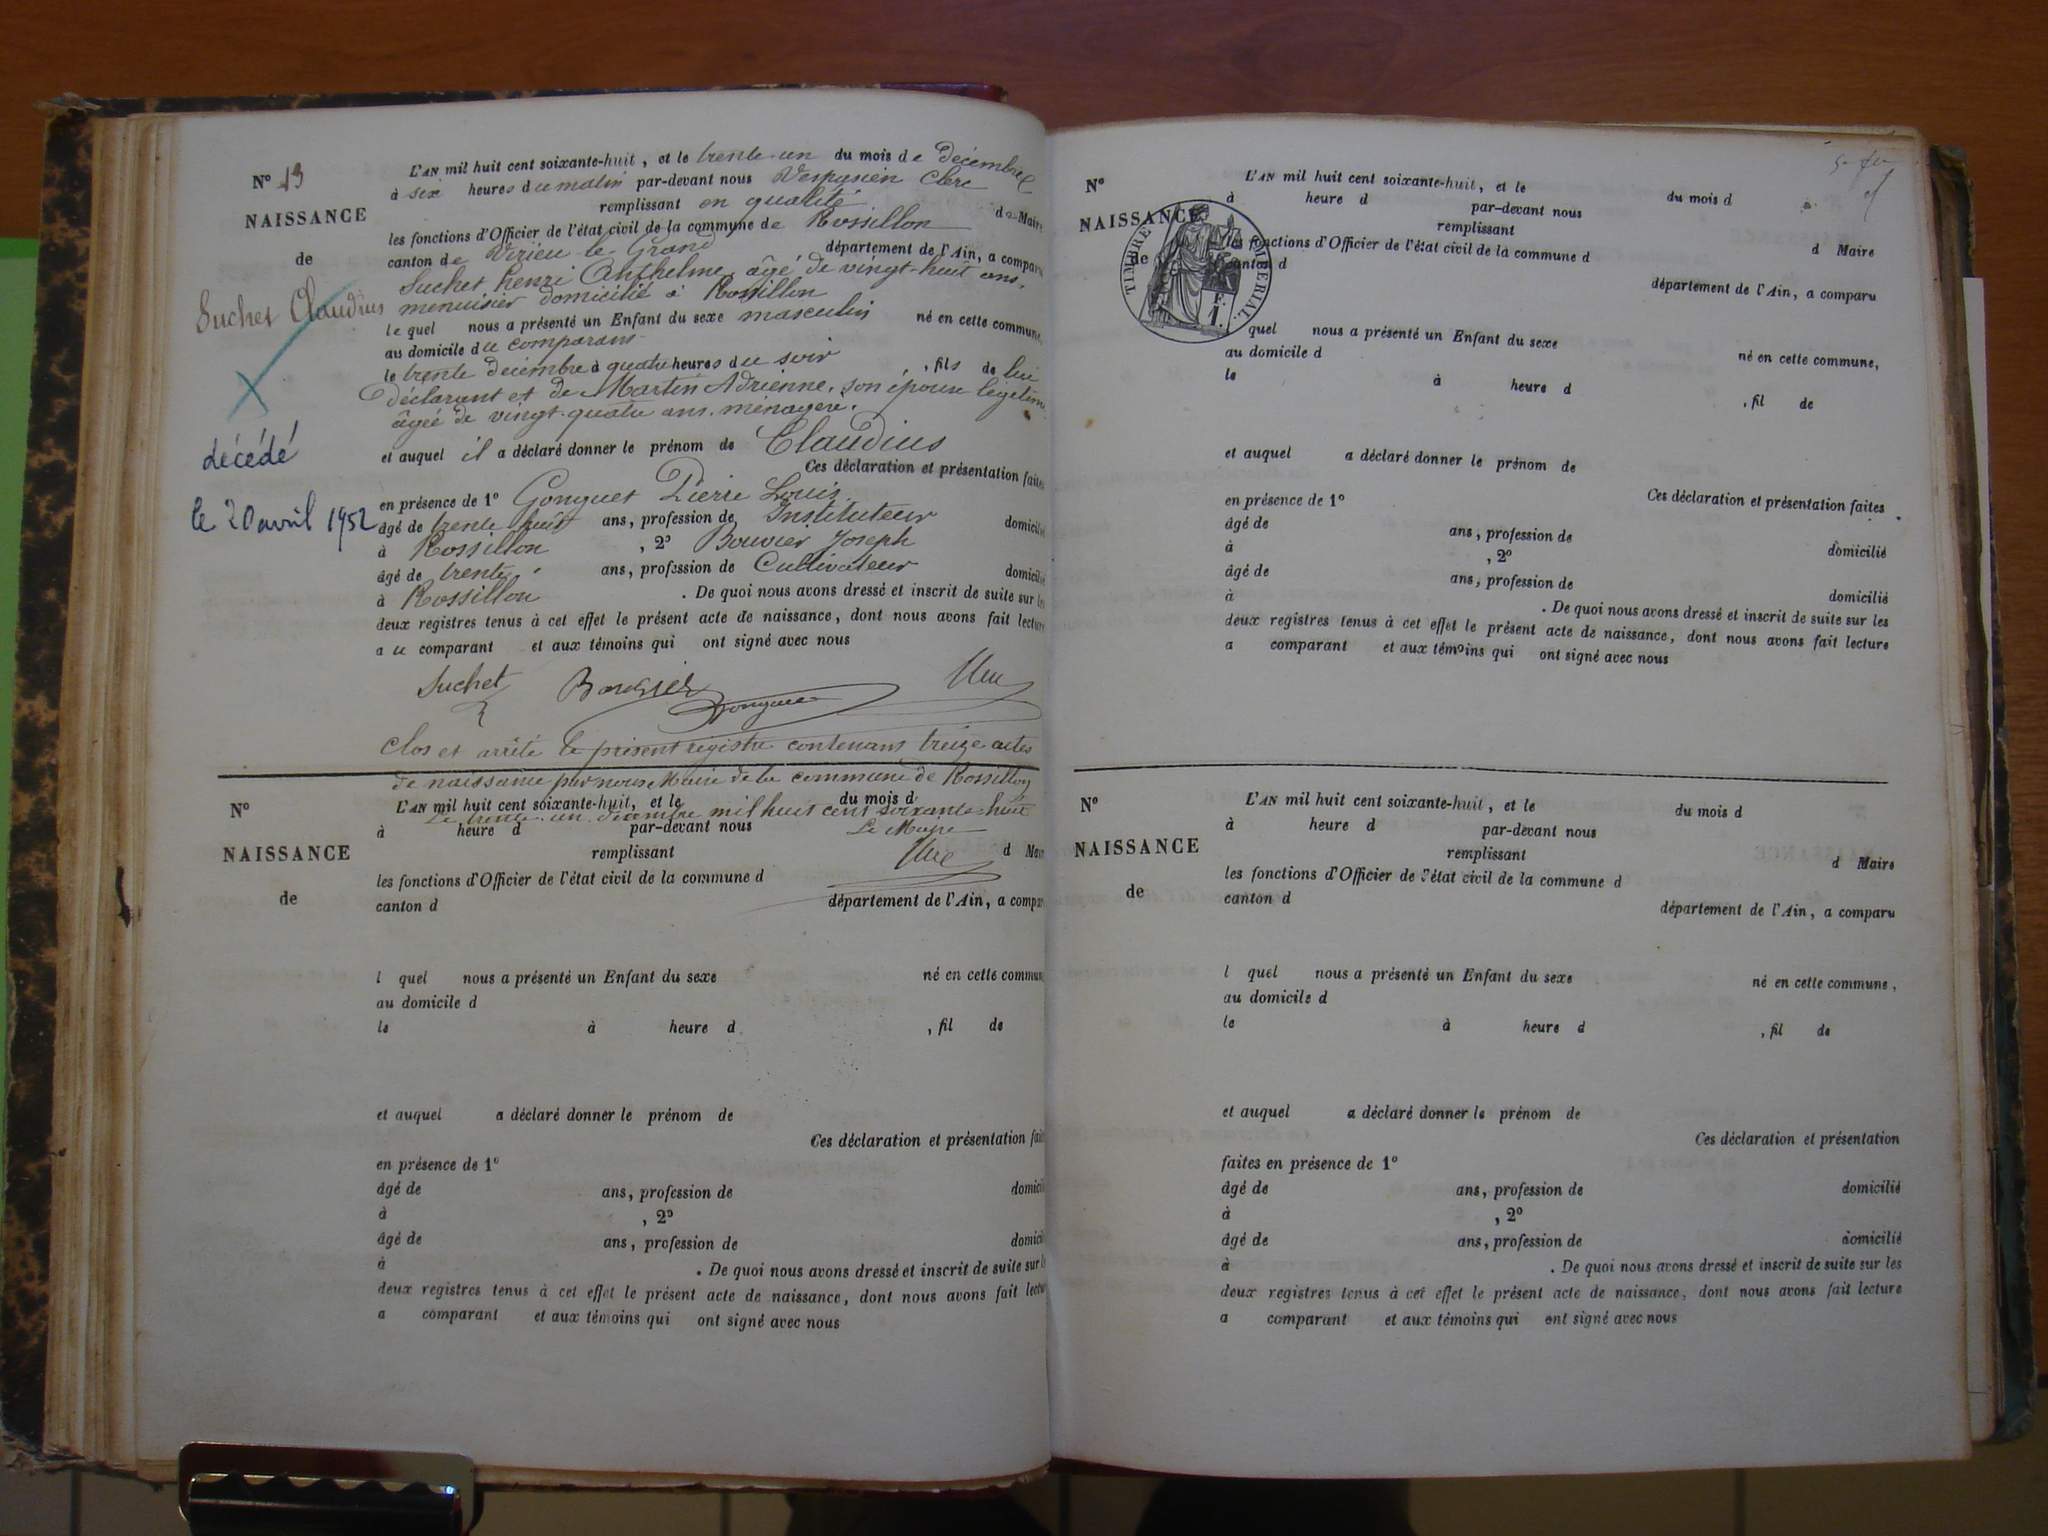 N° 13
NAISSANCE
de
Suchet Claudius
décédé
le 20 avril 1952
L'AN mil huit cent soixante-huit, et le trente-un du mois de décembre
à six heures du matin par-devant nous Vespasien Clerc
remplissant en qualité de Maire
les fonctions d'Officier de l'état civil de la commune de Rossillon
canton de Virieu le Grand département de l'Ain, a comparu
Suchet henri Anthelme, âgé de vingt-huit ans,
menuisier domicilié à Rossillon
le quel nous a présenté un Enfant du sexe masculin né en cette commune,
au domicile du comparant
le trente décembre à quatre heures du soir, fils de lui
déclarant et de Martin Adrienne, son épouse légitime
âgée de vingt-quatre ans, ménagère.
et auquel il a déclaré donner le prénom de Claudius
Ces déclaration et présentation faites
en présence de 1° Gonguet Pierre Louis
âgé de trente huit ans, profession de Instituteur domicilié
à Rossillon, 2° Bouvier Joseph
âgé de trente ans, profession de Cultivateur domicilié
à Rossillon. De quoi nous avons dressé et inscrit de suite sur les
deux registres tenus à cet effet le présent acte de naissance, dont nous avons fait lecture
au comparant et aux témoins qui ont signé avec nous
Suchet Bouvier Clerc
Gonguet
Clos et arrêté le présent registre contenant treize actes
de naissance par nous Maire de la commune de Rossillon
Le trente-un décembre mil huit cent soixante-huit
Le Maire
Clerc
N°
NAISSANCE
de
L'AN mil huit cent soixante-huit, et le du mois d
à heure d par-devant nous
remplissant d Maire
les fonctions d'Officier de l'état civil de la commune d
canton d département de l'Ain, a compar
l quel nous a présenté un Enfant du sexe né en cette commun
au domicile d
le à heure d , fil de
et auquel a déclaré donner le prénom de
Ces déclaration et présentation fait
en présence de 1°
âgé de ans, profession de domicil
à , 2°
âgé de ans, profession de domicil
à . De quoi nous avons dressé et inscrit de suite sur l
deux registres tenus à cet effet le présent acte de naissance, dont nous avons fait lectu
a comparant et aux témoins qui ont signé avec nous
N°
NAISSANCE
de
TIMBRE IMPERIAL
F.
1.
L'AN mil huit cent soixante-huit, et le du mois d
à heure d par-devant nous
remplissant d Maire
les fonctions d'Officier de l'état civil de la commune d
canton d département de l'Ain, a comparu
quel nous a présenté un Enfant du sexe né en cette commune,
au domicile d
le à heure d , fil de
et auquel a déclaré donner le prénom de
Ces déclaration et présentation faites
en présence de 1°
âgé de ans, profession de domicilié
à , 2°
âgé de ans, profession de domicilié
à . De quoi nous avons dressé et inscrit de suite sur les
deux registres tenus à cet effet le présent acte de naissance, dont nous avons fait lecture
a comparant et aux témoins qui ont signé avec nous
N°
NAISSANCE
de
L'AN mil huit cent soixante-huit, et le du mois d
à heure d par-devant nous
remplissant d Maire
les fonctions d'Officier de l'état civil de la commune d
canton d département de l'Ain, a comparu
l quel nous a présenté un Enfant du sexe né en cette commune,
au domicile d
le à heure d , fil de
et auquel a déclaré donner le prénom de
Ces déclaration et présentation
faites en présence de 1°
âgé de ans, profession de domicilié
à , 2°
âgé de ans, profession de domicilié
à . De quoi nous avons dressé et inscrit de suite sur les
deux registres tenus à cet effet le présent acte de naissance, dont nous avons fait lecture
a comparant et aux témoins qui ont signé avec nous